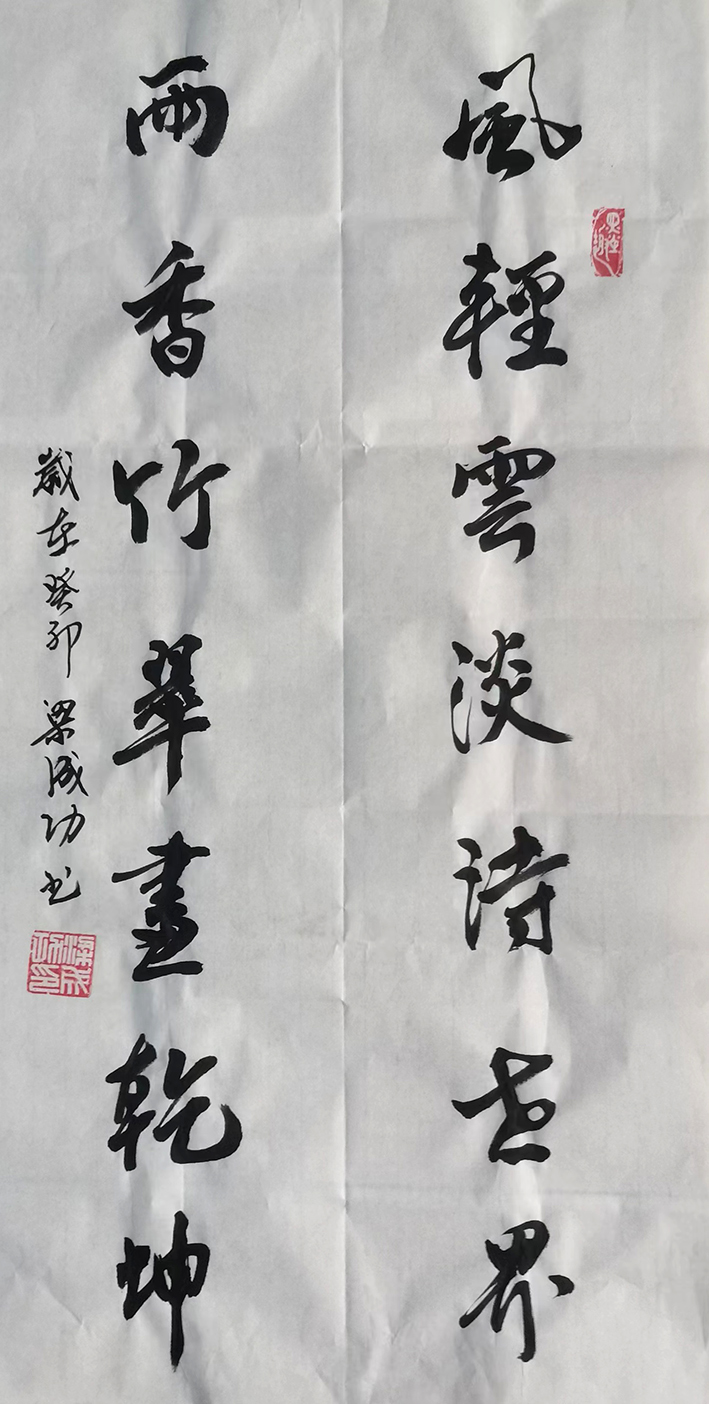 風輕雲淡詩世界
雨香竹翠畫乾坤
歲在癸卯梁成功书
梁成功印